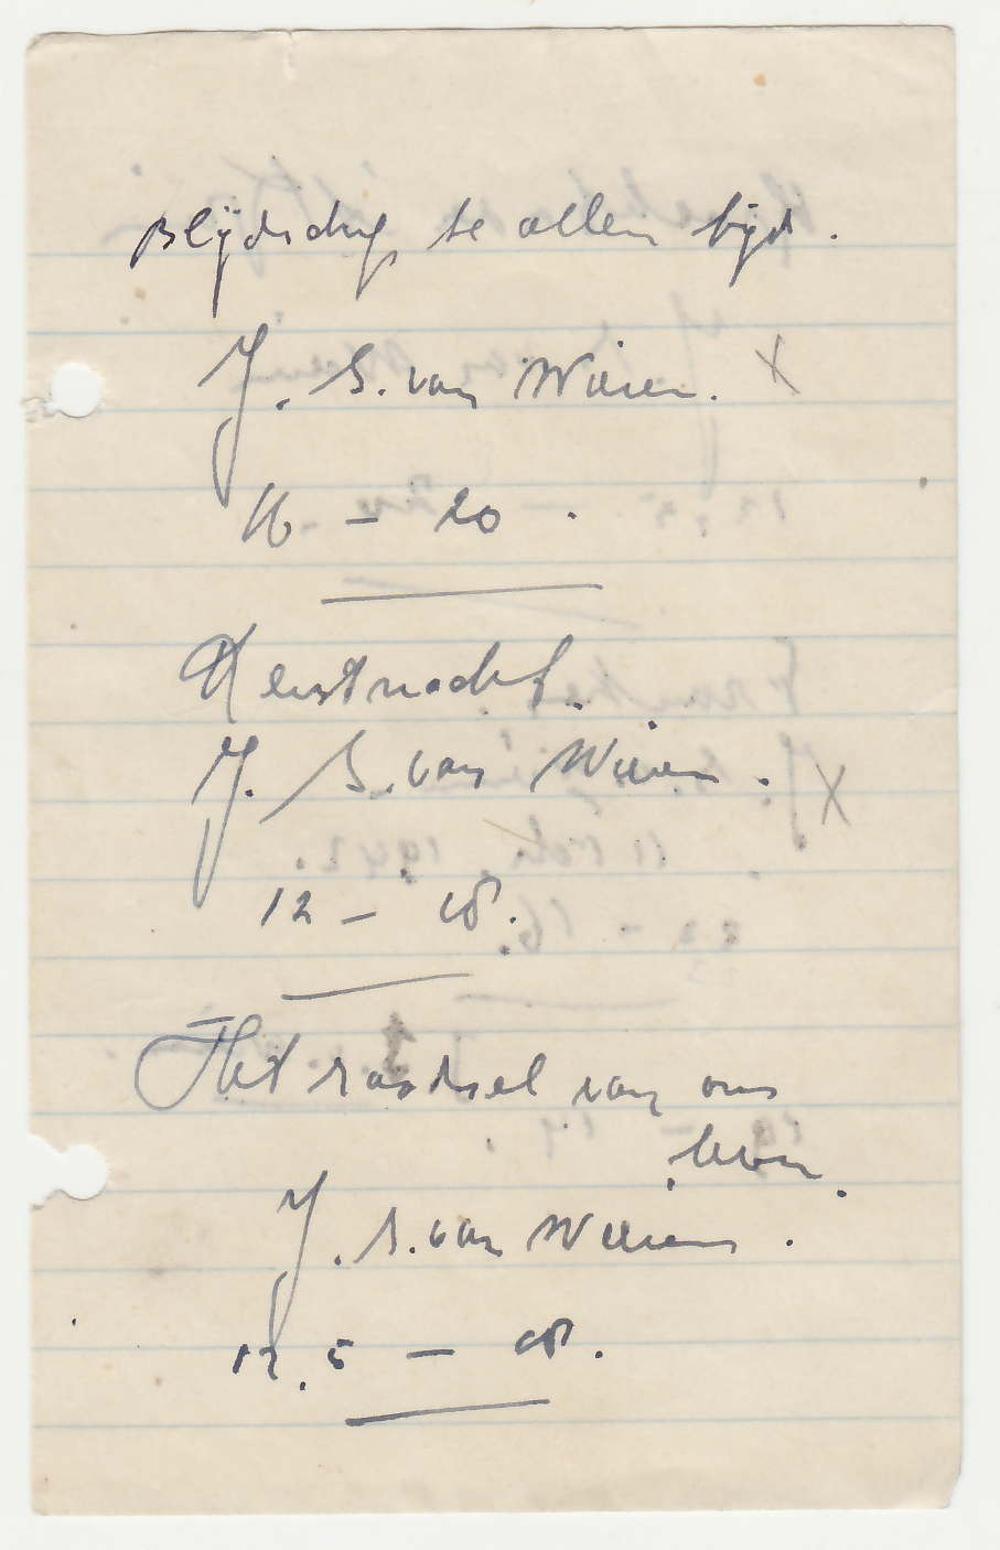 Blijdschap te allen tijd.
J. S. van Wieren. X
16 – 20.
Kerstnacht.
J. S. van Wieren. X
12 – 18.
Het raadsel van ons
leven.
J. S. van Wieren.
12,5 – 18.